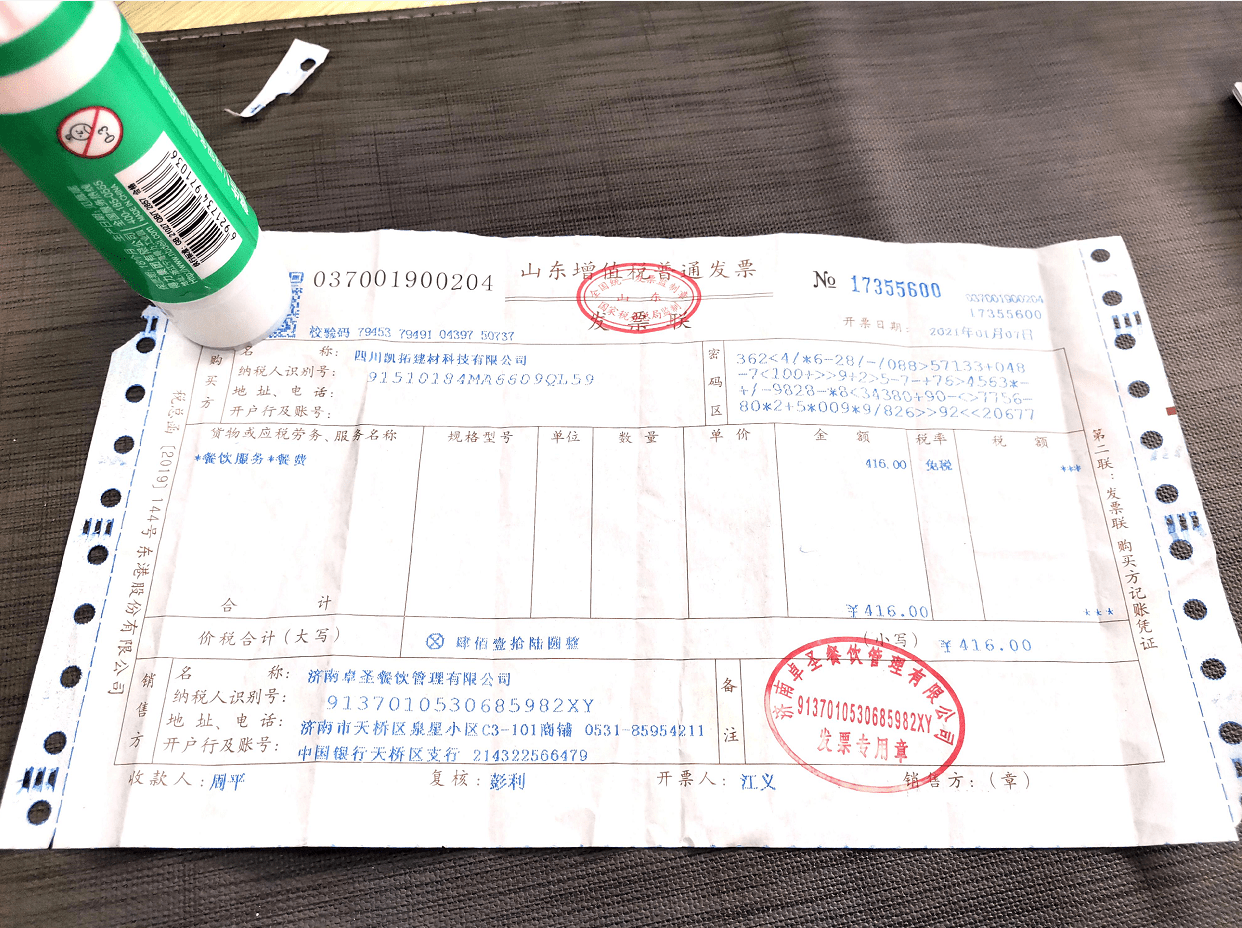 6921734971036
MADE IN CHINA
037001900204
山东增值税普通发票
发票联
全国统一发票监制章
山东
国家税务总局监制
№ 17355600
037001900204
17355600
校验码 79453 79491 04397 50737
开票日期: 2021年01月07日
购买方
名 称: 四川凯拓建材科技有限公司
纳税人识别号: 91510184MA6609QL59
地 址、电 话:
开户行及账号:
密码区
362<4/*6-28/-/088>57133+048
-7<100+>>9+2>5-7-+76>4563*-
+/-9828-*8<34380+90-<>7756-
80*2+5*009*9/826>>92<<20677
货物或应税劳务、服务名称 规格型号 单位 数 量 单 价 金 额 税率 税 额
*餐饮服务*餐费 416.00 免税 ***
合 计 ¥416.00 ***
价税合计(大写) ⊗ 肆佰壹拾陆圆整 (小写) ¥416.00
销售方
名 称: 济南卓圣餐饮管理有限公司
纳税人识别号: 9137010530685982XY
地 址、电 话: 济南市天桥区泉星小区C3-101商铺 0531-85954211
开户行及账号: 中国银行天桥区支行 214322566479
备注
济南卓圣餐饮管理有限公司
9137010530685982XY
发票专用章
收款人: 周平 复核: 彭利 开票人: 江义 销售方: (章)
税总函[2019]144号 东港股份有限公司
第二联: 发票联 购买方记账凭证